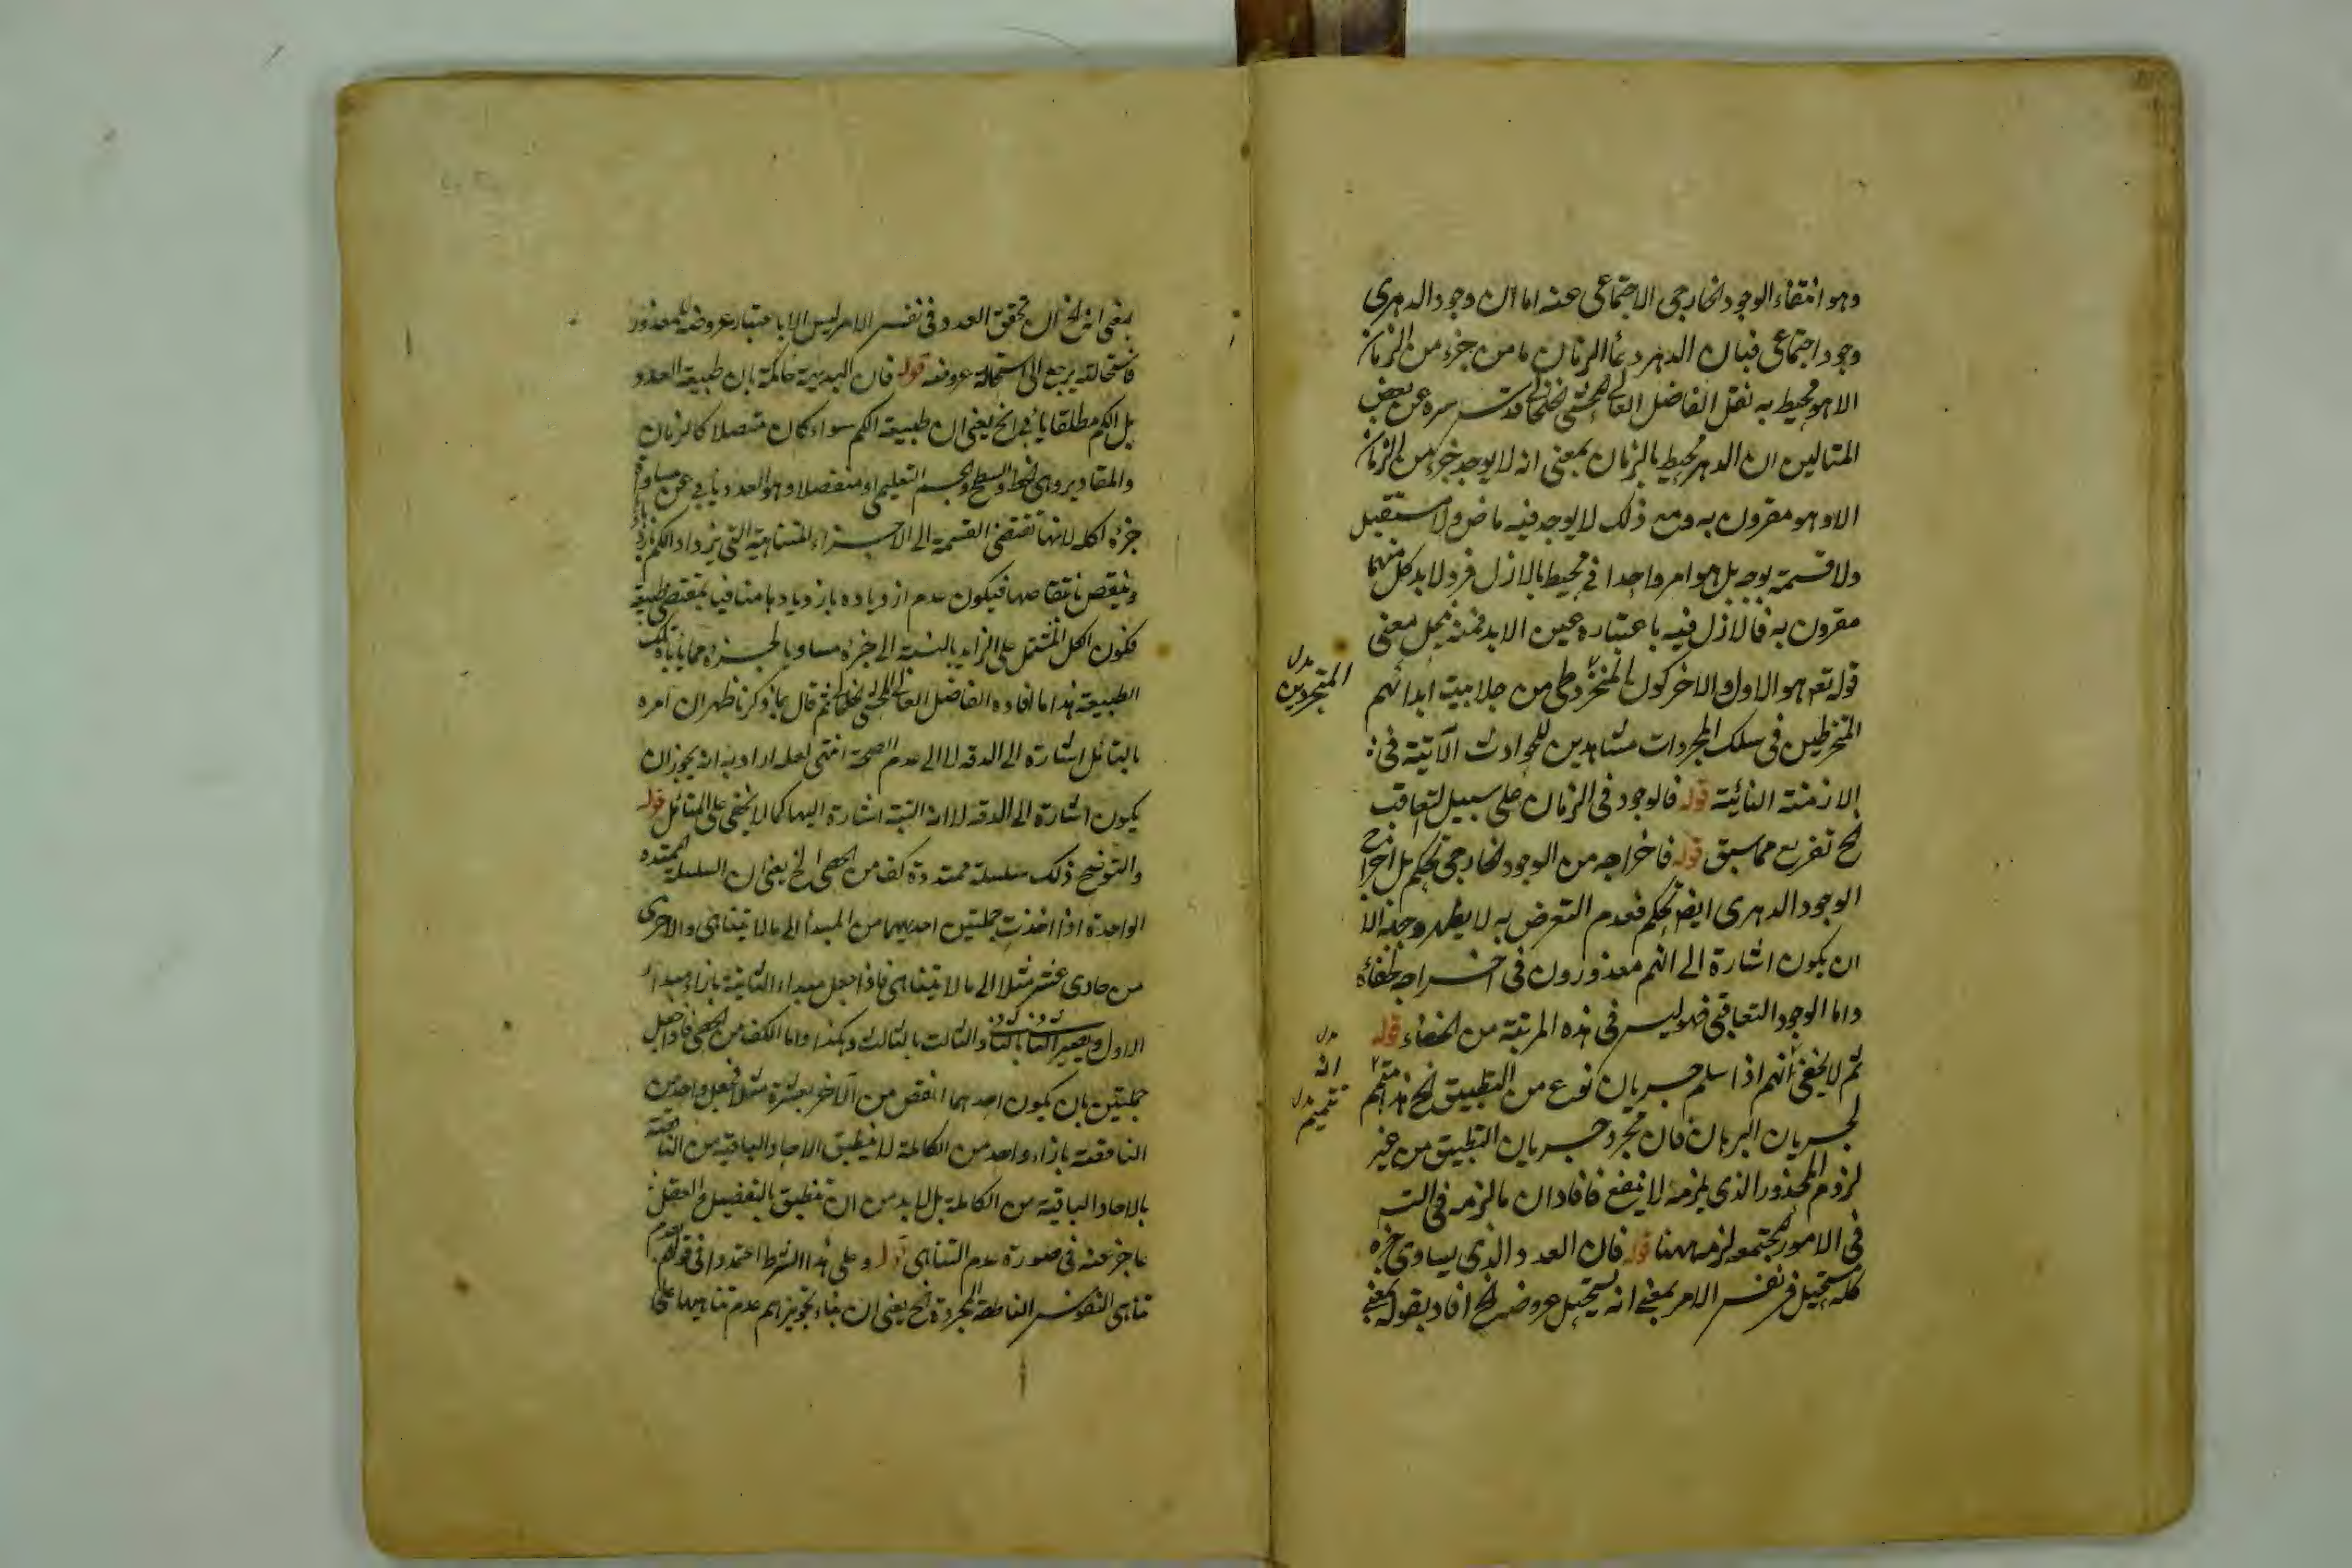 وهو انتفاء الوجود الخارجى الاجتماعى عنه اما ان وجود الدهرى
وجود اجتماعى فبان الدهر دعأ الزمان ما من جزء من الزمان
الا هو محيط به نقل الفاضل العالم المحشى الخلخالى قدس سره عن بعض
المتالهين ان الدهر محيط بالزمان بمعنى انه لا يوجد جزء من الزمان
الا وهو مقرون به ومع ذلك لا يوجد فيه ماض ولا مستقبل
ولا قسمة بوجه بل هو امر واحد محيط بالازل والابد كل منهما
مقرون به فالازل فيه باعتباره عين الابد فمنه يحل معنى
قوله تع هو الاول والاخر كون المنخرطى من جلابيب ابدانهم
المتجردين بدل
المنخرطين فى سلك المجردات مشاهدين للحوادث الآتية فى
الازمنة النائية قوله فالوجود فى الزمان على سبيل التعاقب
الخ تفريع مما سبق قوله فاخراجه من الوجود الخارجى تحكم بل اخراج
الوجود الدهرى ايض تحكم فعدم التعرض به لا يظهر وجهه الا
ان يكون اشارة الى انهم معذورون فى اخراجه لخفائه
واما الوجود التعاقبى فهو ليس فى هذه المرتبة من الخفاء قوله
ثم لا يخفى انهم اذا سلم جريان نوع من التطبيق الخ هذا متمم
انه بدل
تتميم بدل
لجريان البرهان فان مجرد جريان التطبيق من غير
لزوم المحذور الذى يلزمه لا ينفع فافاد ان ما لزمه فى الت
فى الامور المجتمعه لزمه ههنا قوله فان العدد الذى يساوى جزءه
كله مستحيل فى نفس الامر بمعنى انه يستحيل عروضه الخ افاد بقوله بمعنى
بمعنى انه الخ ان تحقق العدد فى نفس الامر ليس الا باعتبار عروضه لمعدود
فاستحالته يرجع الى استحالة عروضه قوله فان البديهة حاكمة بان طبيعة العدد
بل الكم مطلقا يأبى الخ يعنى ان طبيعة الكم سواء كان متصلا كالزمان
والمقادير وهى الخط والسطح والجسم التعليمى او منفصلا وهو العدد يأبى عن مساواة
جزءه كله لانها تقتضى القسمة الى الاجزاء المتناهية التى يزداد الكم بازديادها
وينقص بانتقاصها فيكون عدم ازدياده بازديادها منافيا بمقتضى طبيعة
فكون الكل المشتمل على الزايد بالنسبة الى جزءه مساويا لجزءه مما يأباه تلك
الطبيعة هذا ما افاده الفاضل العالم المحشى الخلخالى ثم قال بما ذكرنا ظهر ان امره
بالتأمل اشارة الى الدقة لا الى عدم الصحة انتهى لعله اراد به انه يجوز ان
يكون اشارة الى الدقة لا انه البتة اشارة اليها كما لا يخفى على المتأمل قوله
والتوضيح ذلك سلسلة ممتدة وكف من الحصى الخ يعنى ان السلسلة الممتدة
الواحدة اذا اخذت جملتين احديهما من المبدأ الى ما لا يتناهى والاخرى
من حادى عشر مثلا الى ما لا يتناهى فاذا جعل مبداء الثانية بازاء مبدأ
الاول ويصير الثانى بالثانى والثالث بالثالث وهكذا واما الكف من الحصى فاذا جعل
جملتين بان يكون احدهما انقص من الآخر بعشرة مثلا فجعل واحد من
الناقصة بازاء واحد من الكاملة لا ينطبق الآحاد الباقية من الناقصة
بالآحاد الباقية من الكاملة بل لا بد من ان تنطبق بالتفصيل والعقل
عاجز عنه فى صورة عدم التناهى قوله وعلى هذا الشرط اعتمدوا فى قولهم بعدم
تناهى النفوس الناطقة المجردة الخ يعنى ان بناء تجويزهم عدم تناهيها على